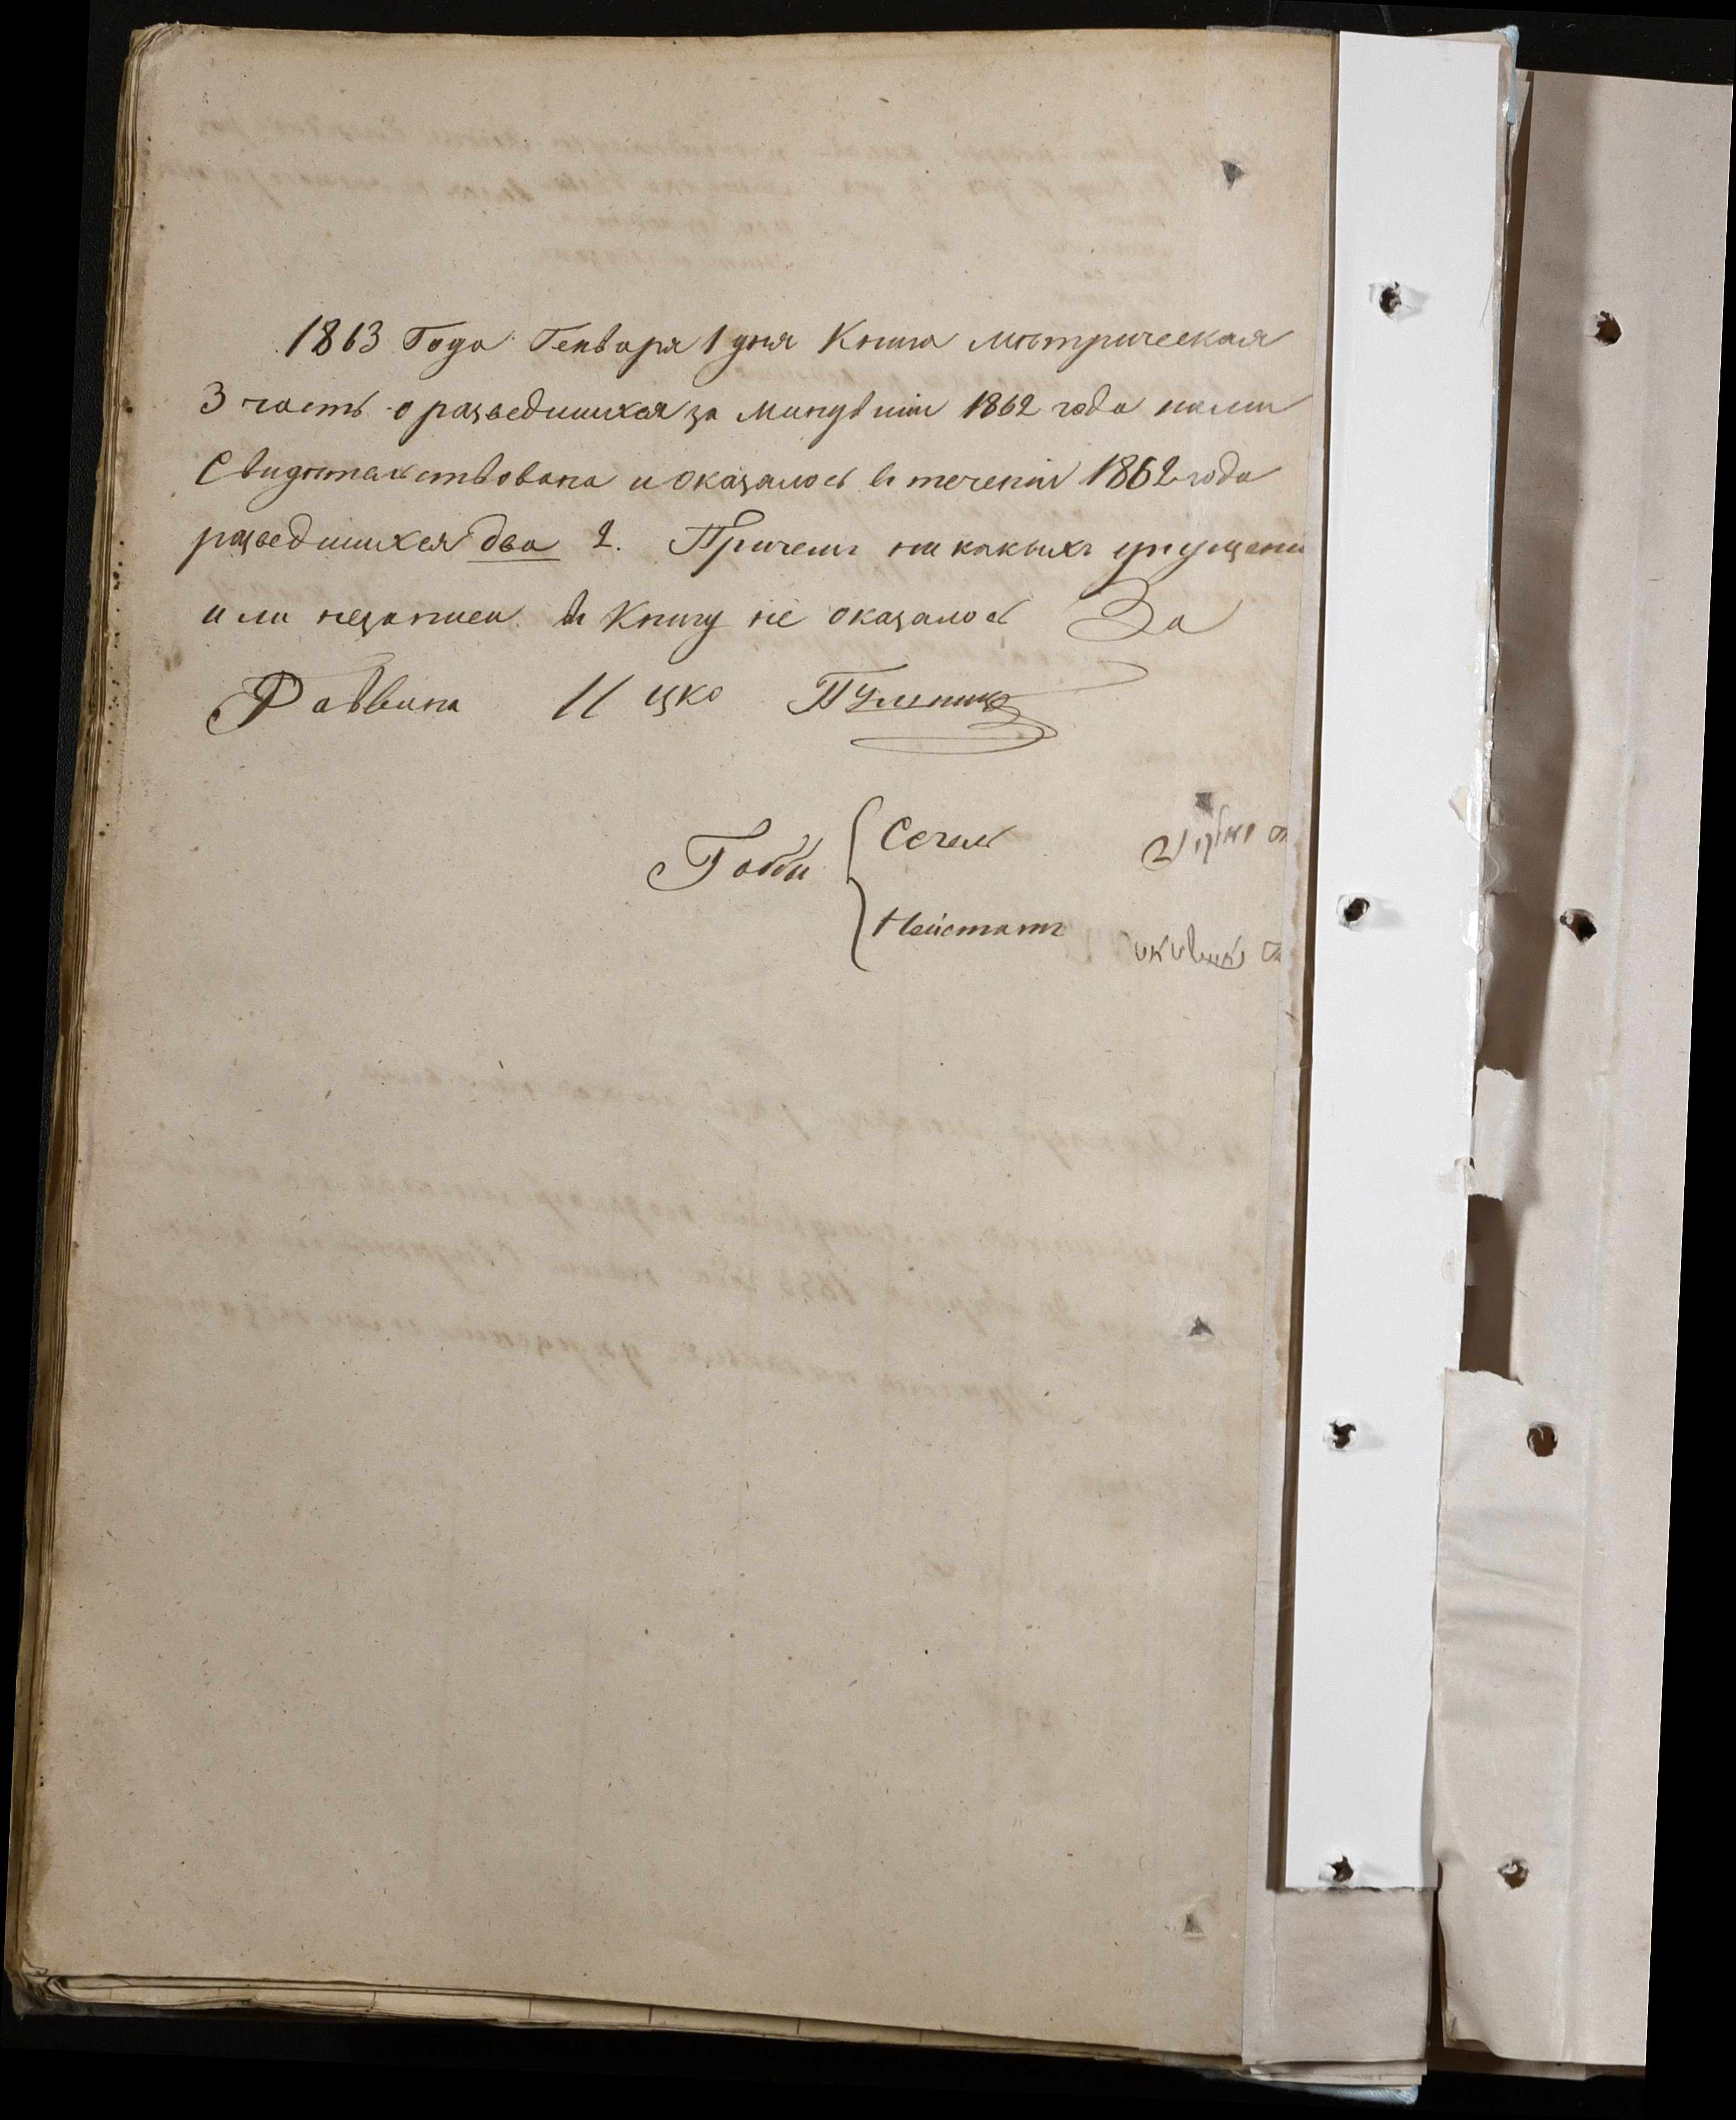 1863 Года Генваря 1 дня Книга метрическая
3 часть о разведшихся за минувшiй 1862 года нами
Свидетельствована и оказалось въ теченiи 1862 года
разведшихся два 2. Причемъ ни какихъ упущени
или незаписи въ Книгу не оказалось За
Раввина Ицко
Габби Сегель
Нейстатъ